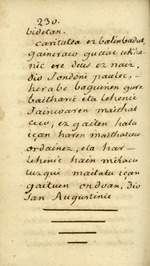 230.
bidetan.
caritatea ez balinbadut,
gaineraco guciac uki=
nic ere deus ez naiz,
dio Jondoni paulec.
herabe baguinen gure
baitharic eta lehenic
Jaincoaren maithat
ceco, ez gaiten halu
içan haren maithatceco
ordainez, eta har=
lehenic hain mitaco
luzqui maitatu içan
gaituen ondoan, dio
San Augustinec